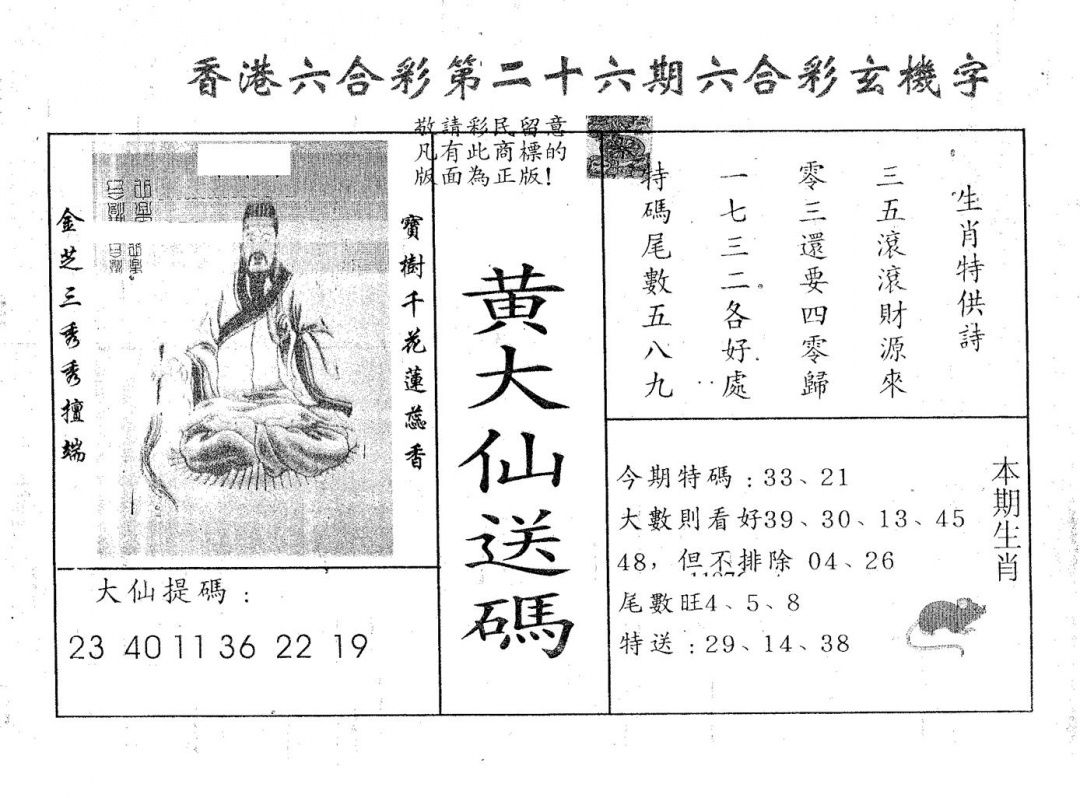 香港六合彩第二十六期六合彩玄機字
敬請彩民留意
凡有此商標的
版面為正版!
寶樹千花蓮蕊香
金芝三秀秀擅端
大仙提碼:
23 40 11 36 22 19
黄大仙送碼
生肖特供詩
三五滾滾財源來
零三還要四零歸
一七三二各好處
特碼尾數五八九
本期生肖
今期特碼:33、21
大數則看好39、30、13、45
48,但不排除 04、26
尾數旺4、5、8
特送:29、14、38